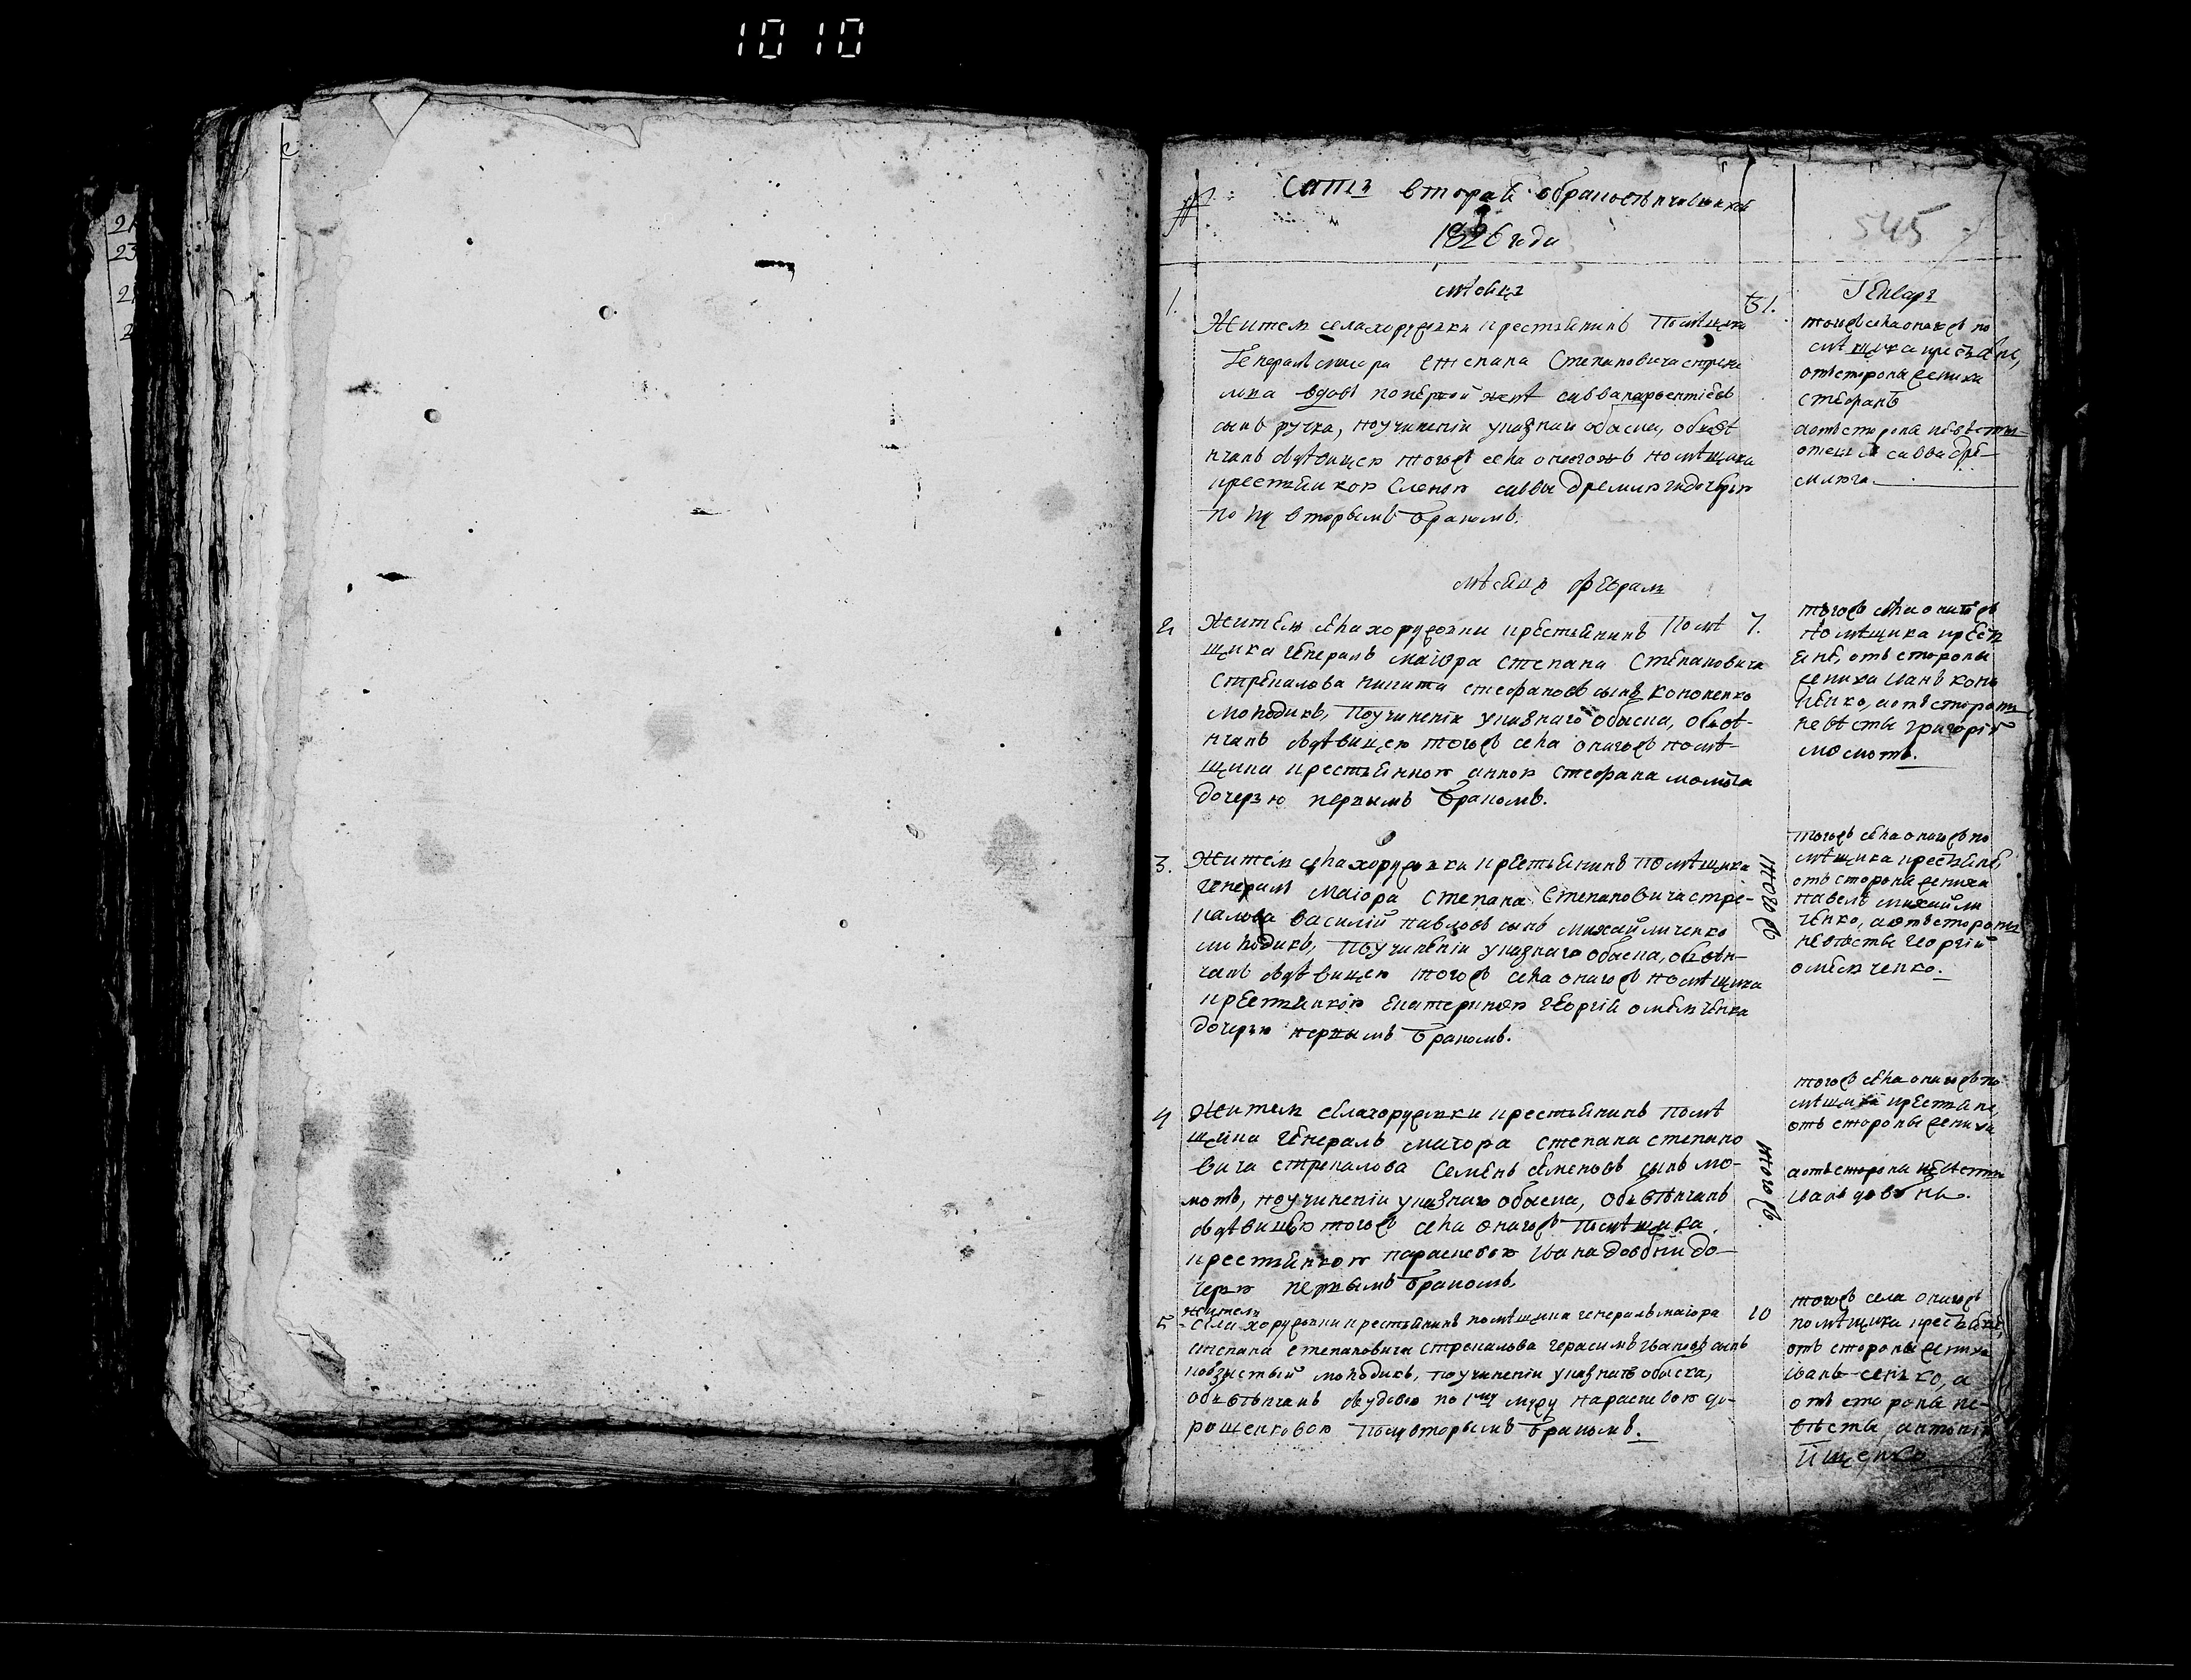 1010
21
23
545
Часть вторая о бракосочетавшихся
1826 года
Мѣсяцъ
Генваря
1.
Житель села хоружовки крестьянинъ Помѣщика
Генералъ маіора Степана Степановича стрека
лова вдовъ по первой женѣ савва
сынъ ручка, поучиненіи указнаго обыска, обвѣ
нчанъ здѣвицею тогожъ села оногожъ помѣщика
крестьянкою Еленою саввы дремлюги дочерью
по вторымъ бракомъ.
31.
тогожъ села оногожъ по
мѣщика крестьяне,
отъ стороны жениха
стефанъ
а отъ стороны невѣсты
отецъ савва дре
млюга.
мѣсяцъ февраль
2
Житель села хоружовки крестьянинъ Помѣ
щика Генералъ маіора Степана Степановича
Стрекалова никита стефановъ сынъ кононенко
молодикъ, Поучиненіи указнаго обыска, обвѣ-
нчанъ здѣвицею тогожъ села оногожъ помѣ-
щика крестьянкою анною Стефана момота
дочерью первымъ бракомъ.
7.
тогожъ села оногожъ
помѣщика крестья
яне, отъ стороны
жениха иванъ коно
ненко, а отъ стороны
невѣсты григорій
момотъ.
3.
Житель села хоружовки крестьянинъ помѣщика
генералъ Маіора Степана Степановича стре-
калова василій павловъ сынъ михайличенко
молодикъ, Поучиненіи указнаго обыска, обвѣн-
чанъ здѣвицею тогожъ села оногожъ помѣщика
крестьянкою Екатериною георгія омельченка
дочерью первымъ бракомъ.
тогожъ
тогожъ села оногожъ по
мѣщика крестьяне,
отъ стороны жениха
павелъ михайли
ченко, а отъ стороны
невѣсты георгій
омельченко.
4
Житель села хоружовки крестьянинъ помѣ
щика генералъ маіора степана степано
вича стрекалова Семенъ семеновъ сынъ мо-
мотъ, поучиненіи указнаго обыска, обвѣнчанъ
здѣвицею тогожъ села оногожъ помѣщика
крестьянкою параскевою ивана довбни до-
черю первымъ бракомъ.
тогожъ.
тогожъ села оногожъ по
мѣщика крестьяне,
отъ стороны жениха
а отъ стороны невѣсты
иванъ довбня.
5
житель
села хоружовки крестьянинъ помѣщика генералъ маіора
степана степановича стрекалова герасимъ ивановъ сынъ
молодикъ, поучиненіи указнаго обыска,
обвѣнчанъ звдовою по 1му мужу параскевою до-
рошенковою вторымъ бракомъ.
10
тогожъ села оногожъ
помѣщика крестьяне,
отъ стороны жениха
иванъ сенько, а
отъ стороны не-
вѣсты антоній
Іщенко